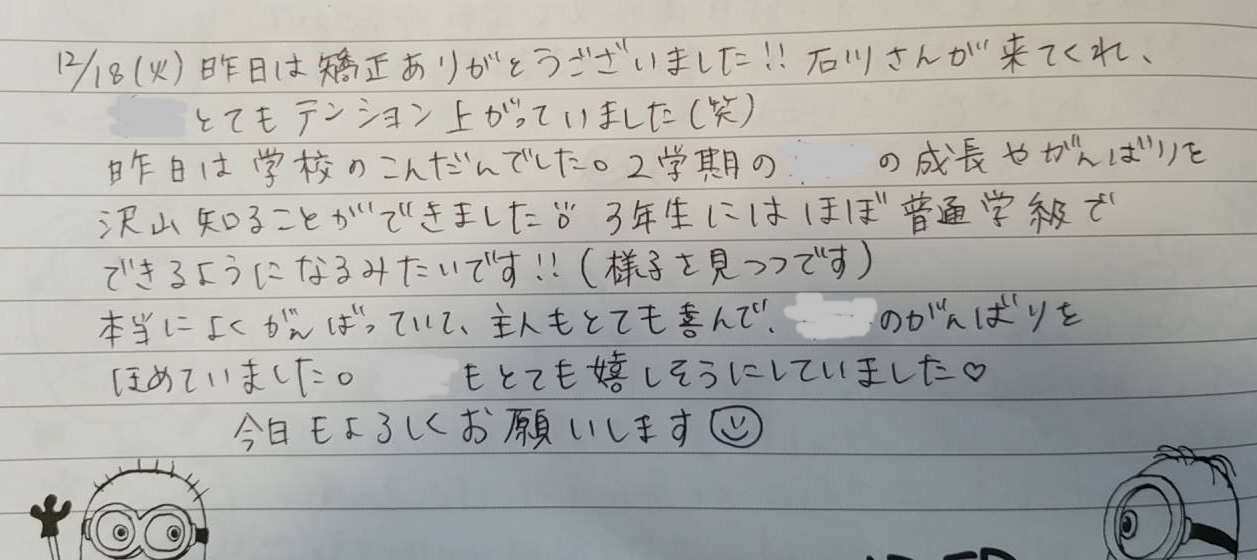 12/18(火) 昨日は矯正ありがとうございました!! 石川さんが来てくれ、
とてもテンション上がっていました(笑)
昨日は学校のこんだんでした。2学期の の成長やがんばりを
沢山知ることができました 3年生にはほぼ普通学級で
できるようになるみたいです!!(様子を見つつです)
本当によくがんばっていて、主人もとても喜んで、 のがんばりを
ほめていました。 もとても嬉しそうにしていました♡
今日もよろしくお願いします☺